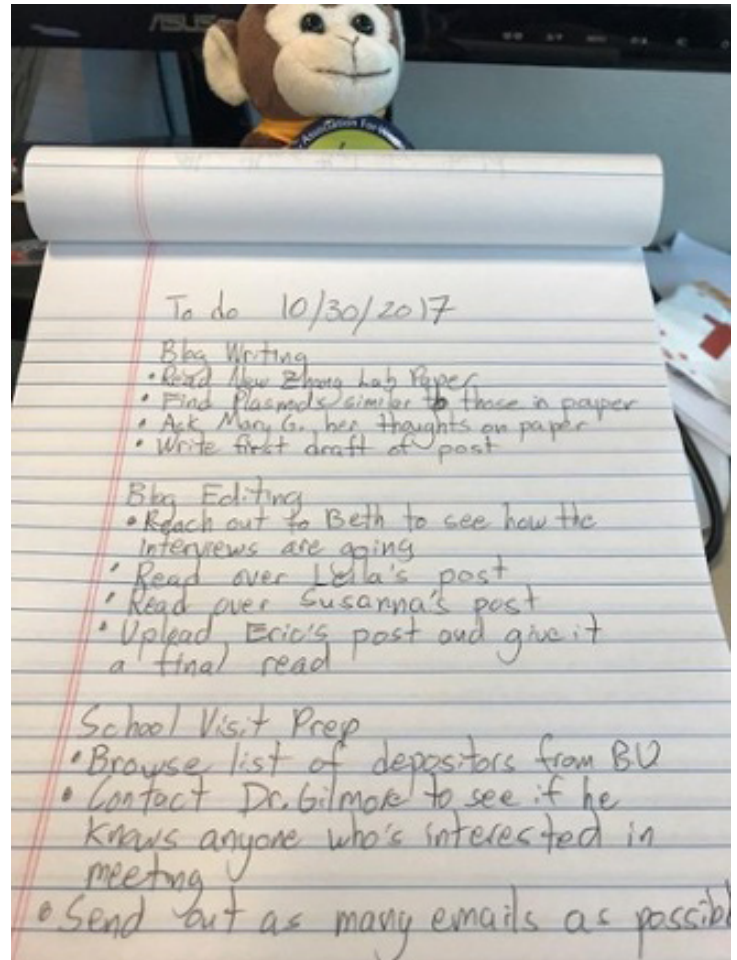 ASUS
Association For
To do 10/30/2017
Blog Writing
• Read New Zhang Lab Paper
• Find Plasmids similar to those in paper
• Ask Mary G. her thoughts on paper
• Write first draft of post
Blog Editing
• Reach out to Beth to see how the
interviews are going
• Read over Leila's post
• Read over Susanna's post
• Upload Eric's post and give it
a final read
School Visit Prep
• Browse list of depositors from BU
• Contact Dr. Gilmore to see if he
knows anyone who's interested in
meeting
• Send out as many emails as possibl